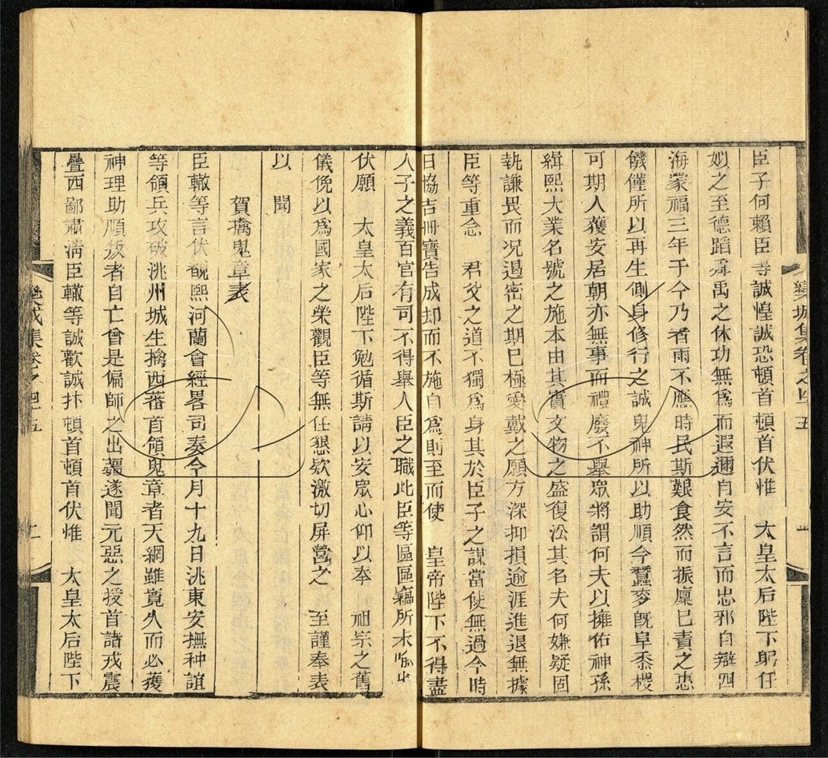 臣子何賴臣等誠惶誠恐頓首頓首伏惟　太皇太后陛下躬任
姒之至德蹈堯禹之休功無為而遐邇自安不言而忠邪自辯四
海蒙福三年于今乃者雨不應時民斯艱食然而振廩已責之恩
饑僅所以再生側身修行之誠鬼神所以助順今蠶麥既阜黍稷
可期人獲安居朝亦無事而禮廢不舉眾將謂何夫以擁佑神孫
緝熙大業名號之施本由其實文物之盛復㳂其名夫何嫌疑固
執謙畏而況遏密之期已極愛戴之願方深抑損逾涯進退無據
臣等重念　君父之道不獨為身其於臣子之謀當使無過今時
日協吉冊寶告成却而不施自為則至而使　皇帝陛下不得盡
人子之義百官有司不得舉人臣之職此臣等區區竊所未
伏願　太皇太后陛下勉循斯請以安眾心仰以奉　祖宗之舊
儀俛以為國家之榮觀臣等無任懇欵激切屏營之　至謹奉表
以　聞
賀擒鬼章表
臣轍等言伏覩熙河蘭會經畧司奏今月十九日洮東安撫种誼
等領兵攻破洮州城生擒西蕃首領鬼章者天網雖寬久而必獲
神理助順叛者自亡曾是偏師之出疆遂聞元惡之授首諸戎震
疊西鄙肅清臣轍等誠歡誠抃頓首頓首伏惟　太皇太后陛下
欒城集卷之四五